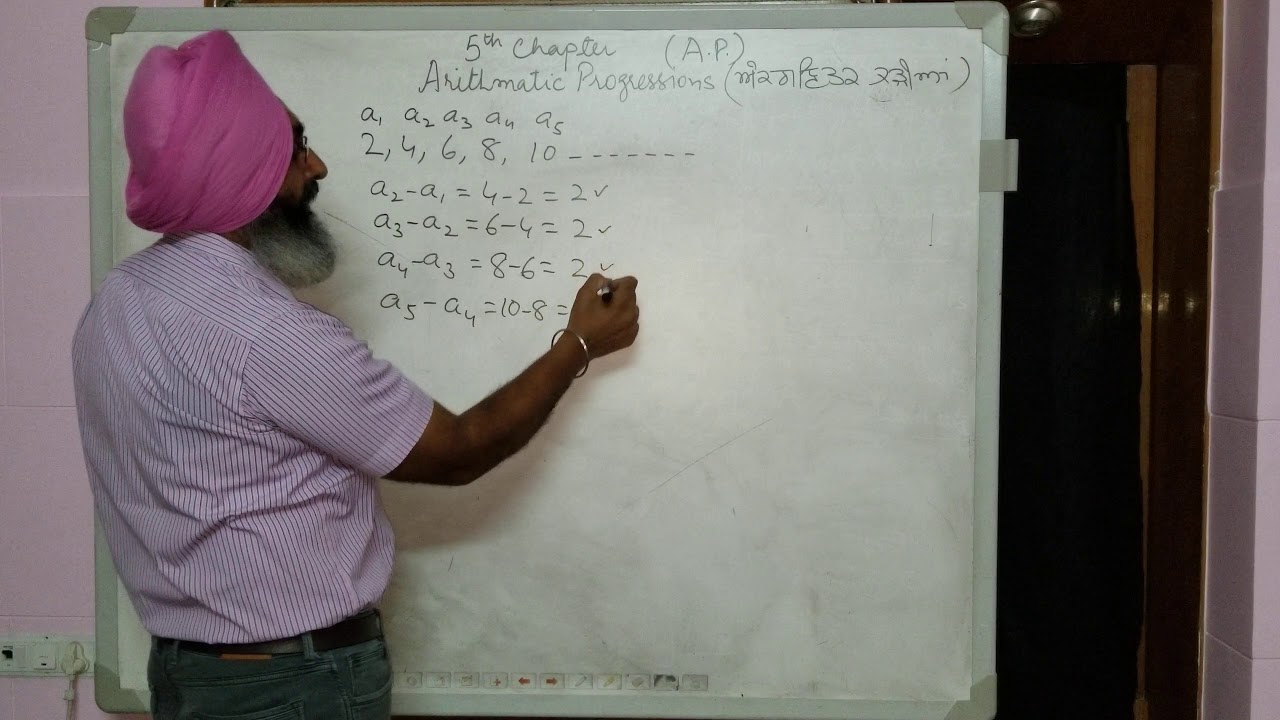 5th Chapter (A.P.)
Arithmatic Progressions (ਅੰਕਗਣਿਤਕ ਲੜੀਆਂ)
a₁ a₂ a₃ a₄ a₅
2, 4, 6, 8, 10 -------
a₂-a₁ = 4-2 = 2 ✓
a₃-a₂ = 6-4 = 2 ✓
a₄-a₃ = 8-6 = 2 ✓
a₅-a₄ = 10-8 =